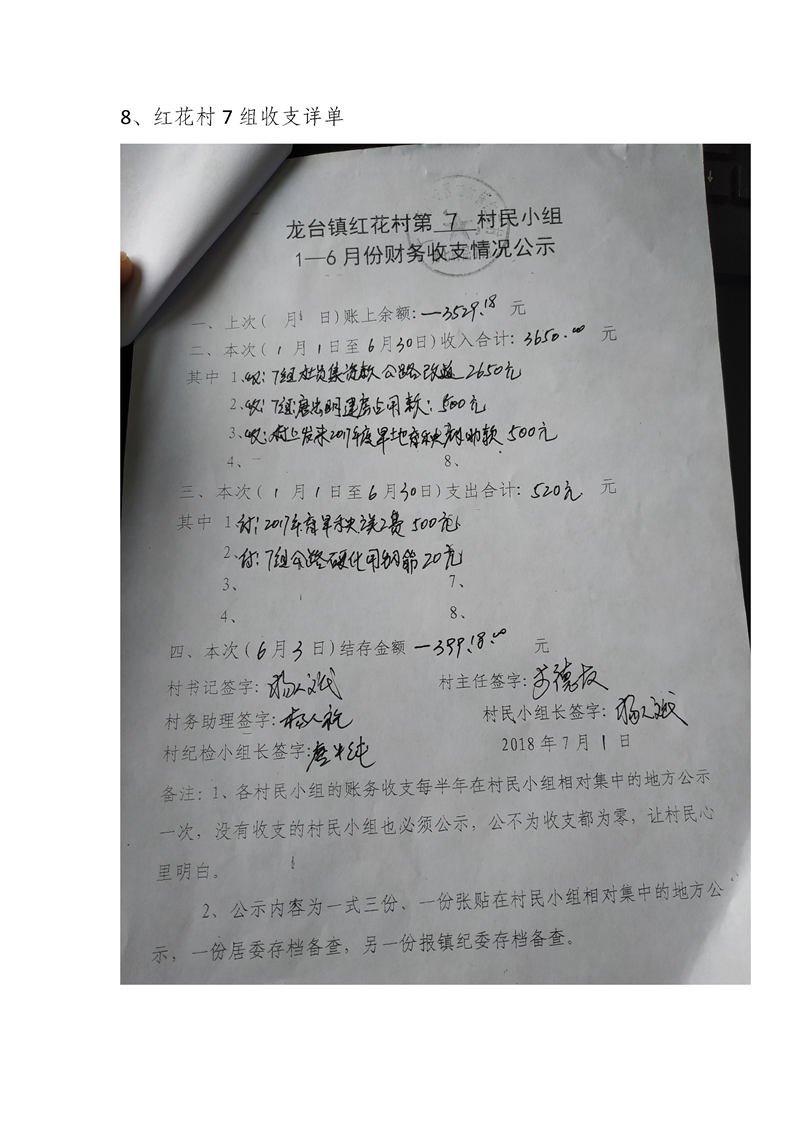 8、红花村7组收支详单
龙台镇红花村第 7 村民小组
1—6月份财务收支情况公示
一、上次( 月 日)账上余额:—3529.18 元
二、本次(1月1日至6月30日)收入合计:3650.00 元
其中 1.收:7组社员集资款公路改造2650元
2、收:7组唐出明建房占用款:500元
3、收:村上发来2017年度旱地育秧补助款500元
4、 8、
三、本次(1月1日至6月30日)支出合计:520元 元
其中 1付:2017年育旱秧误工费500元
2、付:7组公路硬化用钢筋20元
3、 7、
4、 8、
四、本次(6月3日)结存金额 —399.18.00 元
村书记签字: 村主任签字:
村务助理签字: 村民小组长签字:
村纪检小组长签字: 2018年7月1日
备注:1、各村民小组的账务收支每半年在村民小组相对集中的地方公示
一次，没有收支的村民小组也必须公示，公不为收支都为零，让村民心
里明白。
2、公示内容为一式三份、一份张贴在村民小组相对集中的地方公
示，一份居委存档备查，另一份报镇纪委存档备查。